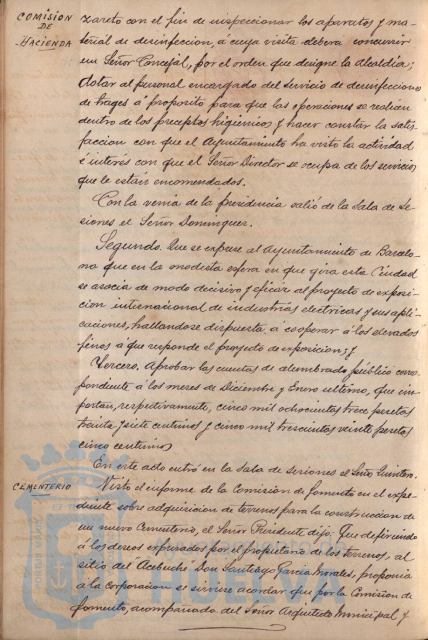 COMISION
DE
HACIENDA
zareto con el fin de inspeccionar los aparatos y ma-
terial de desinfeccion, á cuya visita deberá concurrir
un Señor Concejal, por el orden que designe la alcaldía;
dotar al personal encargado del servicio de desinfecciones
de trages á propósito para que las operaciones se realicen
dentro de los preceptos higienicos y hacer constar la satis-
faccion con que el Ayuntamiento ha visto la actividad
é interés con que el Señor Director se ocupa de los servicios
que le están encomendados.
Con la venia de la presidencia salió de la Sala de Se-
siones el Señor Dominguez.
Segundo. Que se exprese al Ayuntamiento de Barcelo-
na que en la modesta esfera en que gira esta Ciudad
se asocia de modo decisivo y eficáz al proyecto de exposi-
cion internacional de industrias electricas y sus apli-
caciones, hallandose dispuesta á cooperar á los elevados
fines á que responde el proyecto de exposicion; y
Tercero. Aprobar las cuentas de alumbrado público corres-
pondiente á los meses de Diciembre y Enero ultimo, que im-
portan, respectivamente, cinco mil ochocientas trece pesetas
treinta y siete centimos y cinco mil trescientas veinte pesetas
cinco centimos
En este acto entró en la Sala de sesiones el Señor Quintero.
CEMENTERIO
Visto el informe de la Comision de fomento en el expe-
diente sobre adquisicion de terrenos para la construccion de
un nuevo Cementerio, el Señor Presidente dijo: Que defiriendo
á los deseos expresados por el propietario de los terrenos, al
sitio del Acebuche Don Santiago Garcia Morales, proponia
a la Corporacion se sirviese acordar que por la Comision de
fomento, acompañada del Señor Arquitecto Municipal y